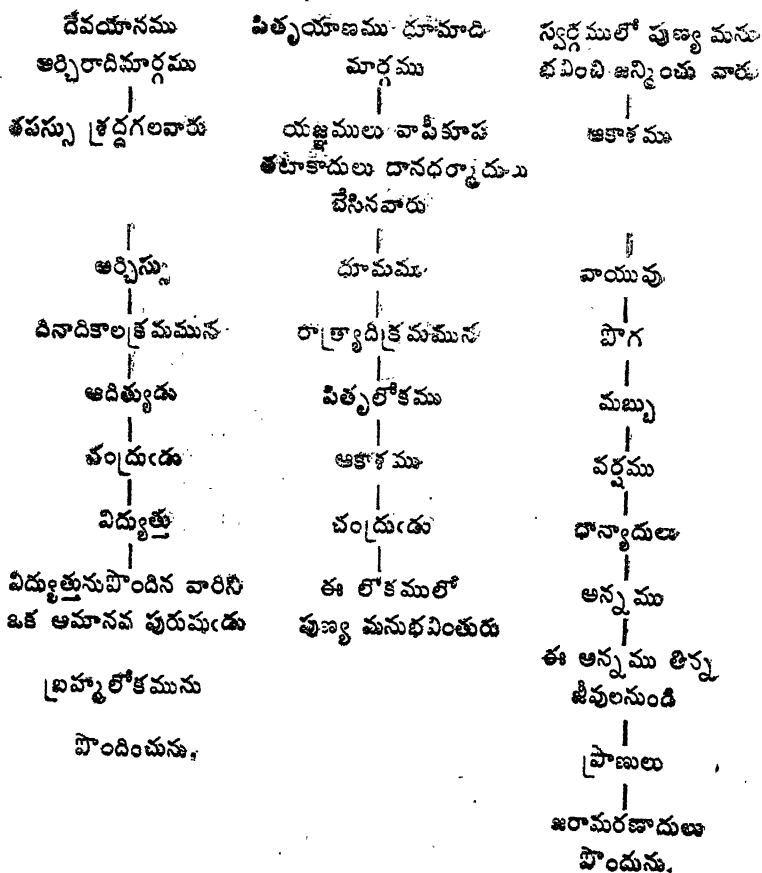 దేవయానము
అర్చిరాదిమార్గము
తపస్సు శ్రద్ధగలవారు
అర్చిస్సు
దినాదికాలక్రమమున
ఆదిత్యుడు
చంద్రుఁడు
విద్యుత్తు
విద్యుత్తునుపొందిన వారిని
ఒక అమానవ పురుషుఁడు
బ్రహ్మలోకమును
పొందించును.
పితృయాణము ధూమాది
మార్గము
యజ్ఞములు వాపీకూప
తటాకాదులు దానధర్మాదులు
చేసినవారు
ధూమము
రాత్ర్యాదిక్రమమున
పితృలోకము
ఆకాశము
చంద్రుఁడు
ఈ లోకములో
పుణ్య మనుభవింతురు
స్వర్గములో పుణ్య మను
భవించి జన్మించు వారు
ఆకాశము
వాయువు
పొగ
మబ్బు
వర్షము
ధాన్యాదులు
అన్నము
ఈ అన్నము తిన్న
జీవులనుండి
ప్రాణులు
జరామరణాదులు
పొందును.